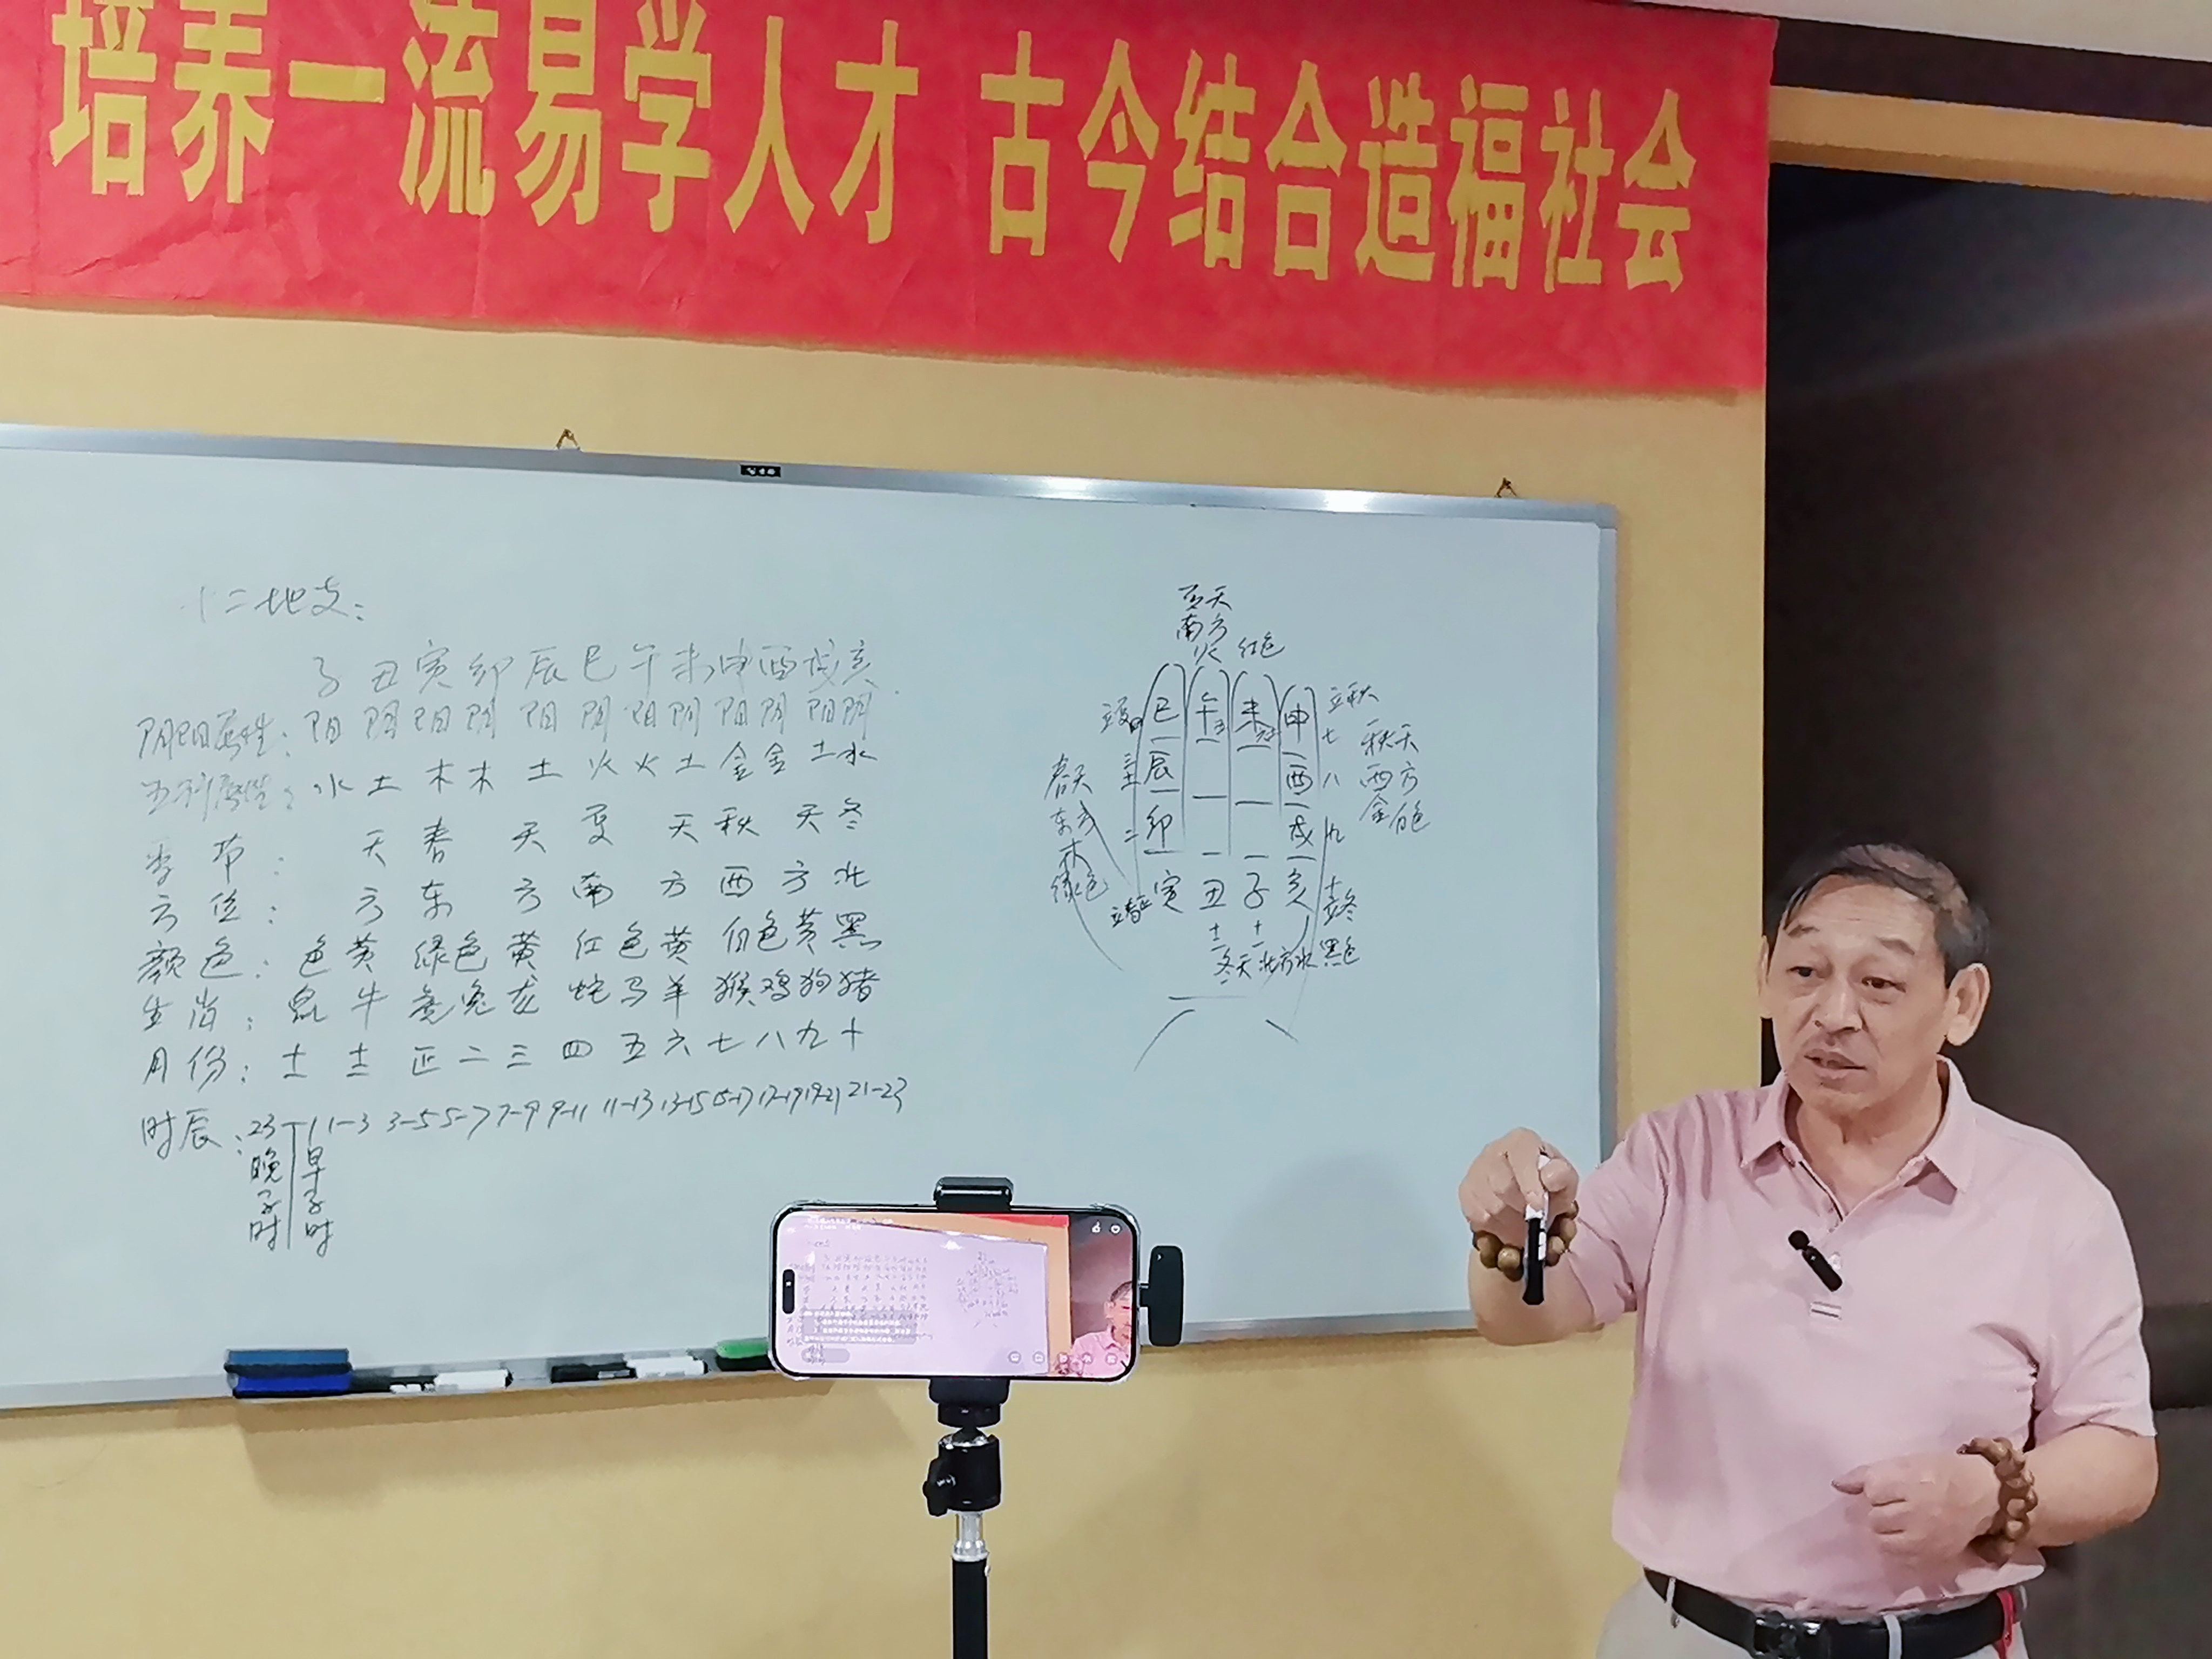 培养一流易学人才 古今结合造福社会
十二地支：
子 丑 寅 卯 辰 巳 午 未 申 酉 戌 亥
阴阳属性：阳 阴 阳 阴 阳 阴 阳 阴 阳 阴 阳 阴
五行属性：水 土 木 木 土 火 火 土 金 金 土 水
季 节： 天 春 天 夏 天 秋 天 冬
方 位： 方 东 方 南 方 西 方 北
颜 色：色 黄 绿色 黄 红 色 黄 白色 黄 黑
生 肖：鼠 牛 虎 兔 龙 蛇 马 羊 猴 鸡 狗 猪
月 份：十一 十二 正 二 三 四 五 六 七 八 九 十
时辰：23-1 1-3 3-5 5-7 7-9 9-11 11-13 13-15 15-17 17-19 19-21 21-23
晚子时
早子时
夏天
南方
火 红色
立夏四 巳 午五 未六 申 七 立秋
三 辰 酉 八
二 卯 戌 九
立春正 寅 丑 子 亥 十 立冬
十二 十一
冬天 北方水 黑色
春天
东方
木
绿色
秋天
西方
金 白色